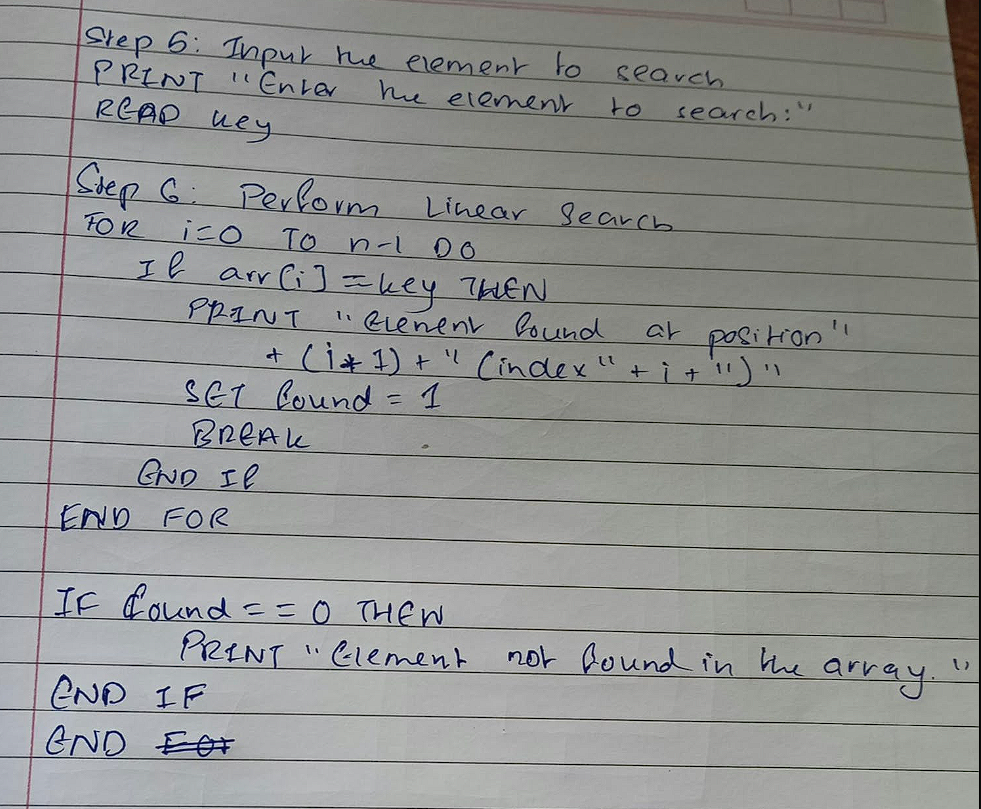 Step 5: Input the element to search
PRINT "Enter the element to search:"
READ key
Step 6: Perform Linear Search
FOR i=0 TO n-1 DO
If arr[i] = key THEN
PRINT "Element found at position"
+ (i+1) + " (index" + i + ")"
SET found = 1
BREAK
END If
END FOR
IF found == 0 THEN
PRINT "Element not found in the array."
END IF
END